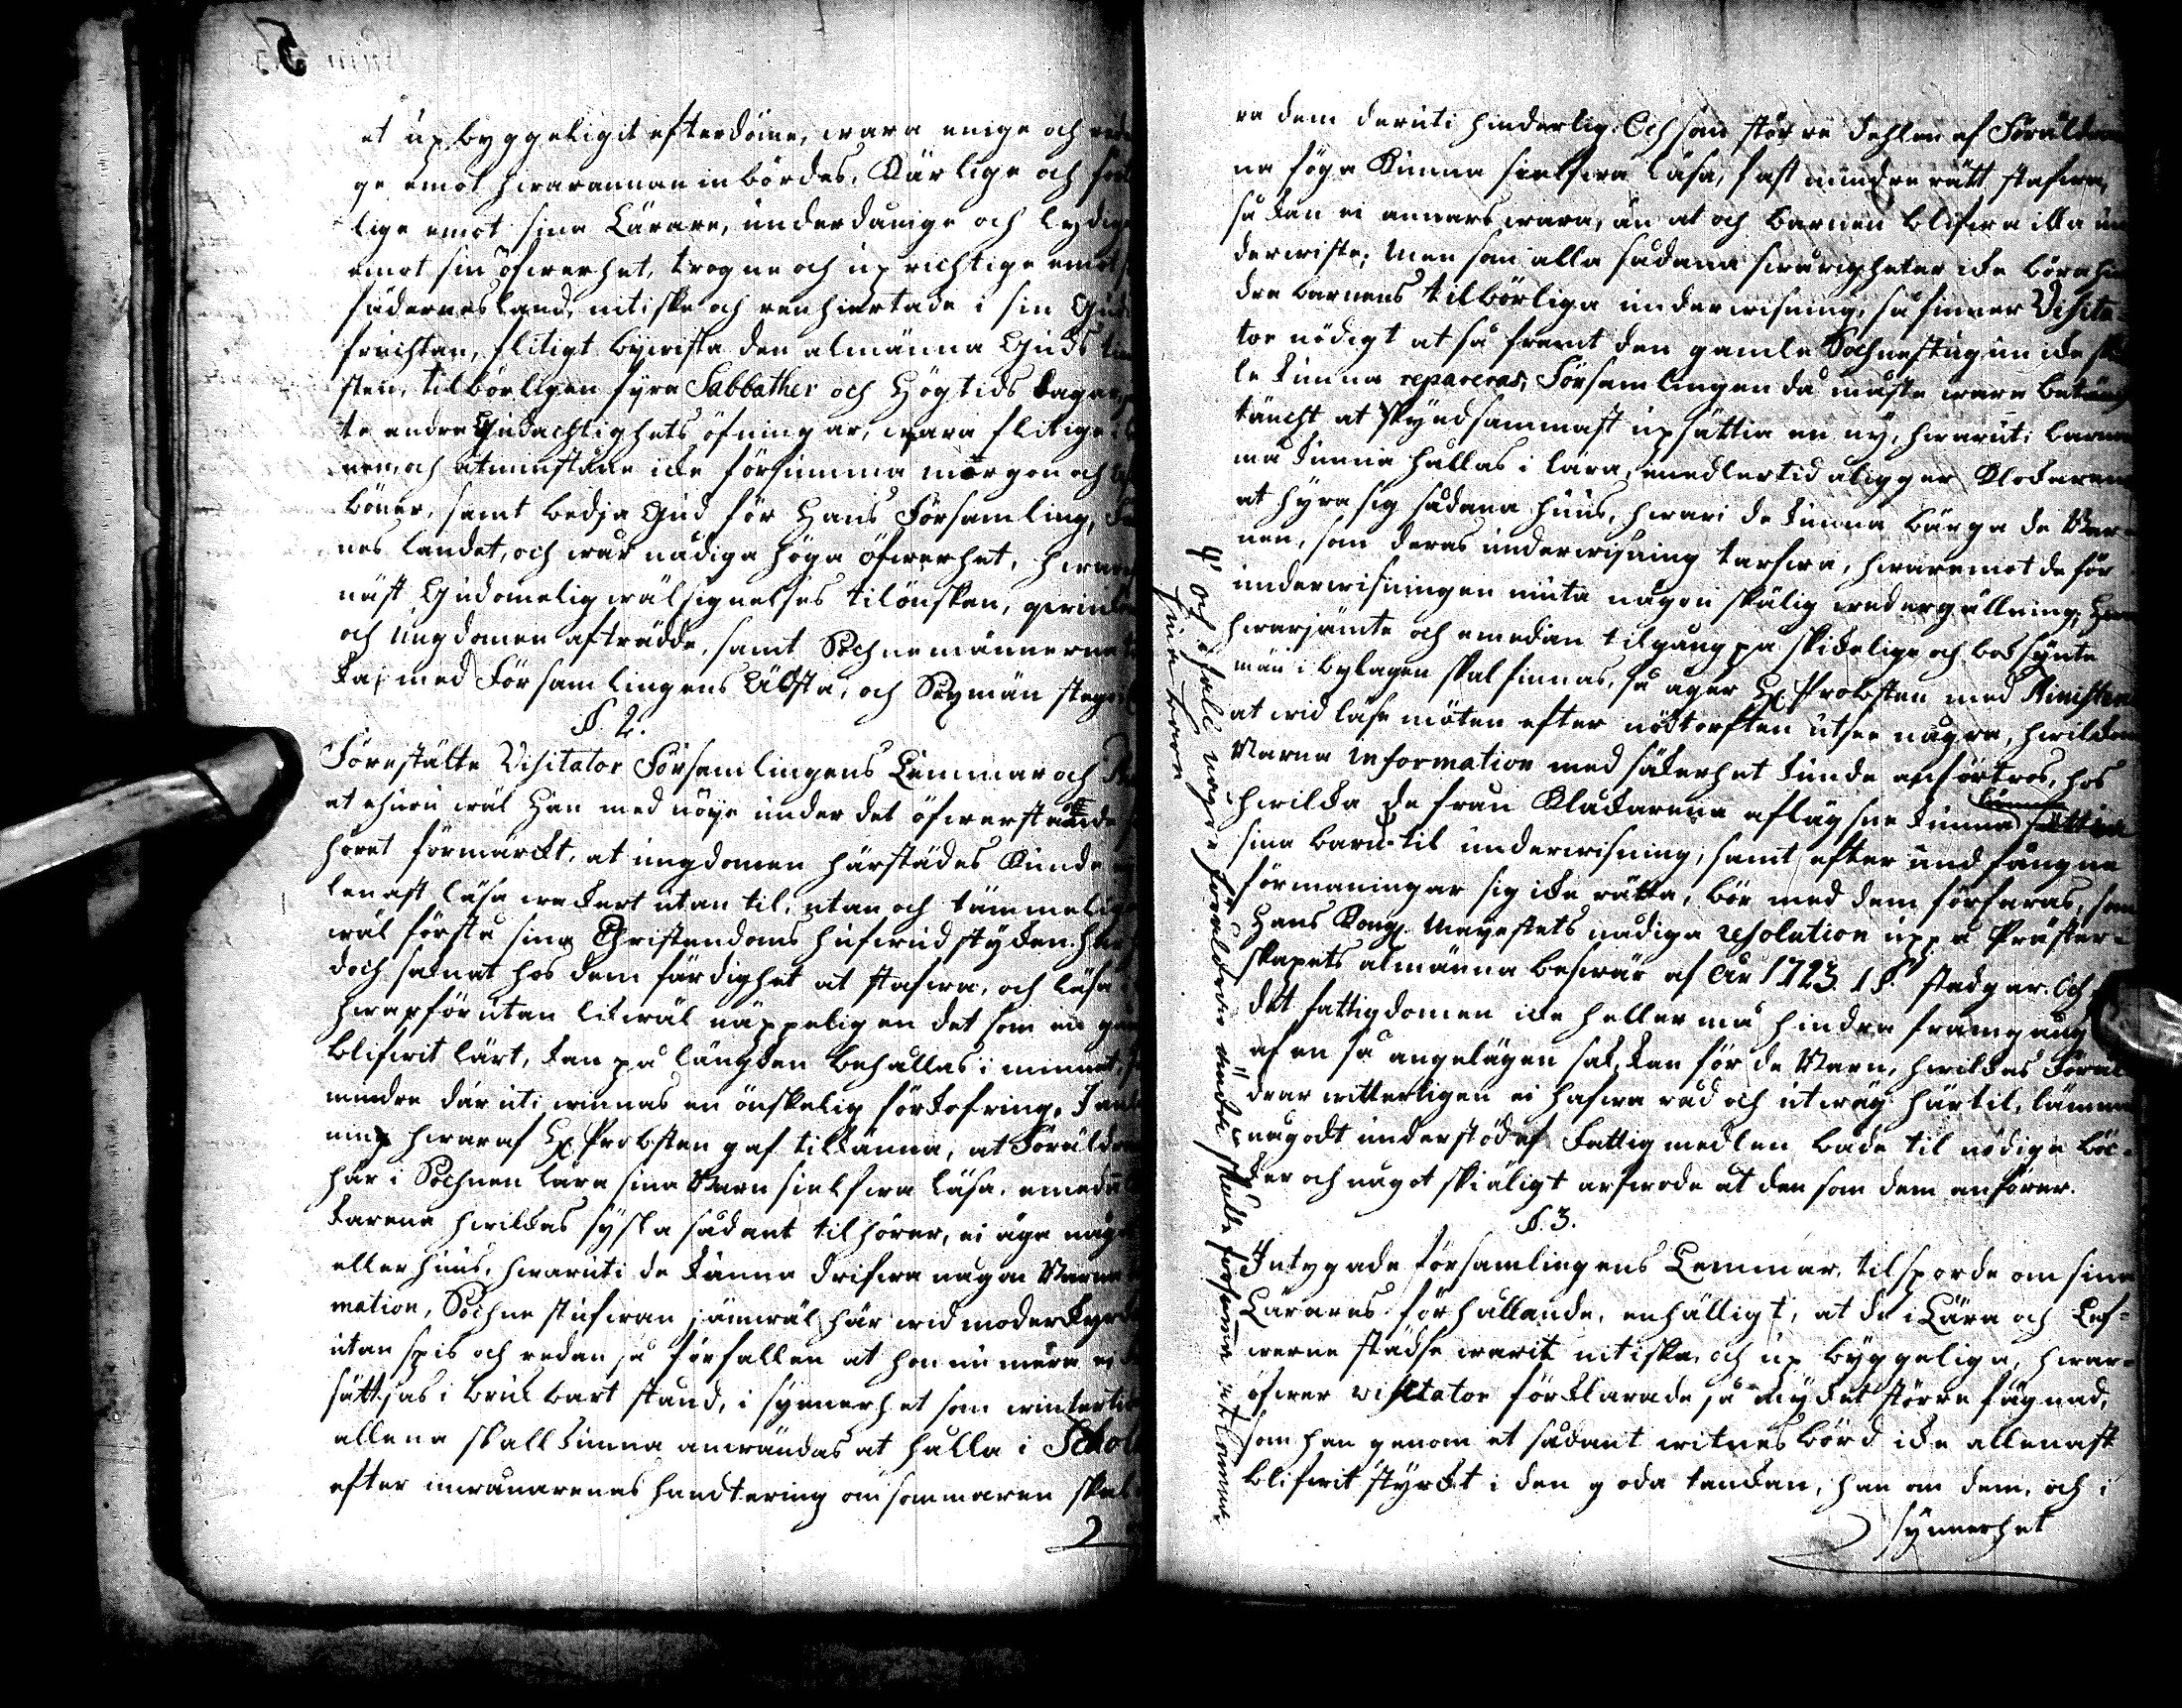 5
et upbyggeligit efterdöme, wara enige och
ge emot hwarannan inbördes, Kärlige och
lige emot sina Lärare, underdånige och lydige
emot sin öfwerhet, trogne och uprichtige emot
fädernesland, nitiske och renhiertade i sin
fruchtan, flitigt bywista den almänna Guds
sten, tilbörligen fyra Sabbather och Högtids dagar,
te andra Gudachtighets öfningar, wara flitige
nen, och åtminstone icke försumma morgon och
böner, samt bedja Gud för Hans Församling,
nes landet, och wår nådiga höga öfwerhet,
näst Gudomelig wälsignelses tilönskan,
och ungdomen afträdde, samt Sochnemännerna
med Församlingens Äldsta, och Sexmän
§ 2.
Förestälte Visitator Församlingens Lemmar och
at ehuru wäl Han med nöye under det öfwerståndne
höret förmärckt, at ungdomen härstädes Kunde
lenast läsa wackert utan til, utan och tämmelig
wäl förstå sina Christendoms hufwudstycken,
doch saknat hos dem färdighet at stafwa, och läsa
hwarförutan likwäl näppeligen det som en gång
blifwit lärt, kan på längden behållas i minnet,
mindre däruti winnas en önskelig förkofring.
ning hwaraf H. Probsten gaf tilkänna, at Föräldrar
här i Sochnen lära sina Barn sielfwa läsa, emedan
karena hwilkas syssla sådant tilhörer, ei äga
eller huus, hwaruti de kunna drifwa någon Barna
mation, Sochne stufwan jämwäl här wid moderkyrckan
utan spis och redan så förfallen at hon nu mera ei
sättjas i brukbart stånd, i synnerhet som wintertid
allena skall kunna anwändas at hålla i Schol
efter inwånarenas handtering om sommaren skal
ra dem deruti hinderlig. Och som större dehlen af Föräldrar
na föga Kunna sielfwa läsa, fast mindre rätt stafwa,
så kan ei annars wara, än at och barnen blifwa illa un
derwiste; Men som alla sådana swårigheter icke böra hin
dra barnens tilbörliga underwisning, så finner Visita-
tor nödigt at så framt den gamle Sochnestugun icke
le kunna repareras, Församlingen då måste wara
täncht at skyndsammast upsättia en ny, hwaruti barnen
må kunna hållas i lära, emedlertid åligger Klockarena
at hyra sig sådana huus, hwari de kunna bärga de Bar-
nen, som deras underwisning tarfwa, hwaremot de för
underwisningen niuta någon skälig wedergällning,
hwarjämte och emedan tilgång på skickelige och boksynte
män i bylagen skal finnas, så äger H. Probsten med Ministern
at wid läsemöten efter nödtorften utse några, hwilkom
Barna information med säkerhet kunde anförtros, hos
hwilka de från Klåckarena aflägsne kunna
sina barn til underwisning; samt efter undfångne
förmaningar sig icke rätta, bör med dem förfaras, som
Hans Kongl. Mayestets nådiga resolution uppå Präster-
skapets almänna beswär af År 1723. 1 §. stadgar. Och
det fattigdomen icke heller må hindra framgång
af en så angelägen sak, kan för de Barn, hwilkas Föräl
drar witterligen ei hafwa råd och utwäg härtil, lämnas
något understöd af Fattigmedlen både til nödige böc-
ker och något skiäligt arfwode åt den som dem anförer.
§. 3.
Intygade församlingens Lemmar, tilsporde om sina
Lärares förhållande, enhälligt, at de i Lära och Lef-
werne städse warit nitiske, och upbyggelige, hwar-
öfwer visitator förklarade så mycket större fägnad,
som han genom et sådant witnesbörd icke allenast
blifwit styrckt i den goda tanckan, han om dem, och i
synnerhet
och i fall några föräldrar ändå skulle försumma
sina barn